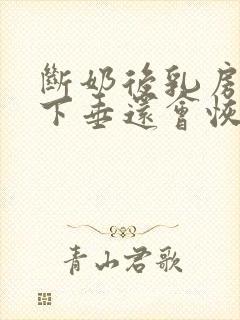 斷奶後乳房
下垂還會恢
青山君歌